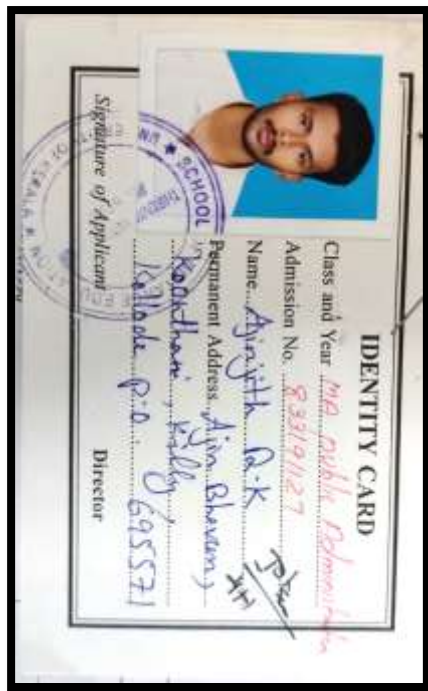 IDENTITY CARD
Class and Year MA Public Administration
Admission No. 83319127
Name Ajinjith R.K
Permanent Address Ajin Bhavan,
Kollode P.O. 695571
Signature of Applicant
Director
SCHOOL